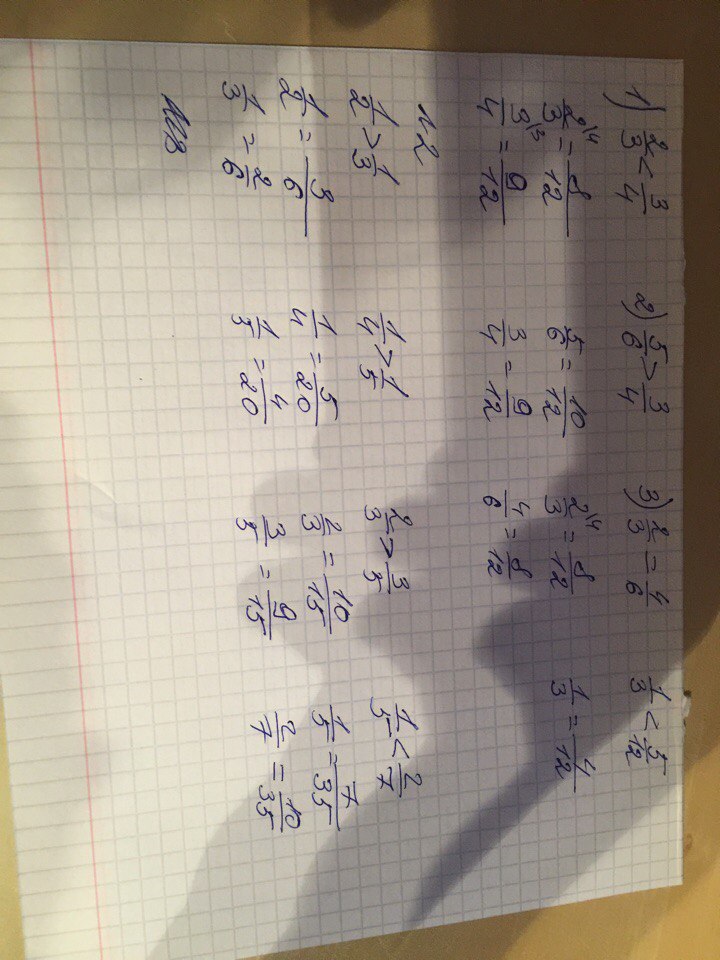 1) 2/3 < 3/4 2) 5/6 > 3/4 3) 2/3 = 4/6 1/3 < 5/12
2\4/3 = 8/12 5/6 = 10/12 2\4/3 = 8/12 1/3 = 4/12
3\3/4 = 9/12 3/4 = 9/12 4/6 = 8/12
н2
1/2 > 1/3 1/4 > 1/5 2/3 > 3/5 1/5 < 2/7
1/2 = 3/6 1/4 = 5/20 2/3 = 10/15 1/5 = 7/35
1/3 = 2/6 1/5 = 4/20 3/5 = 9/15 2/7 = 10/35